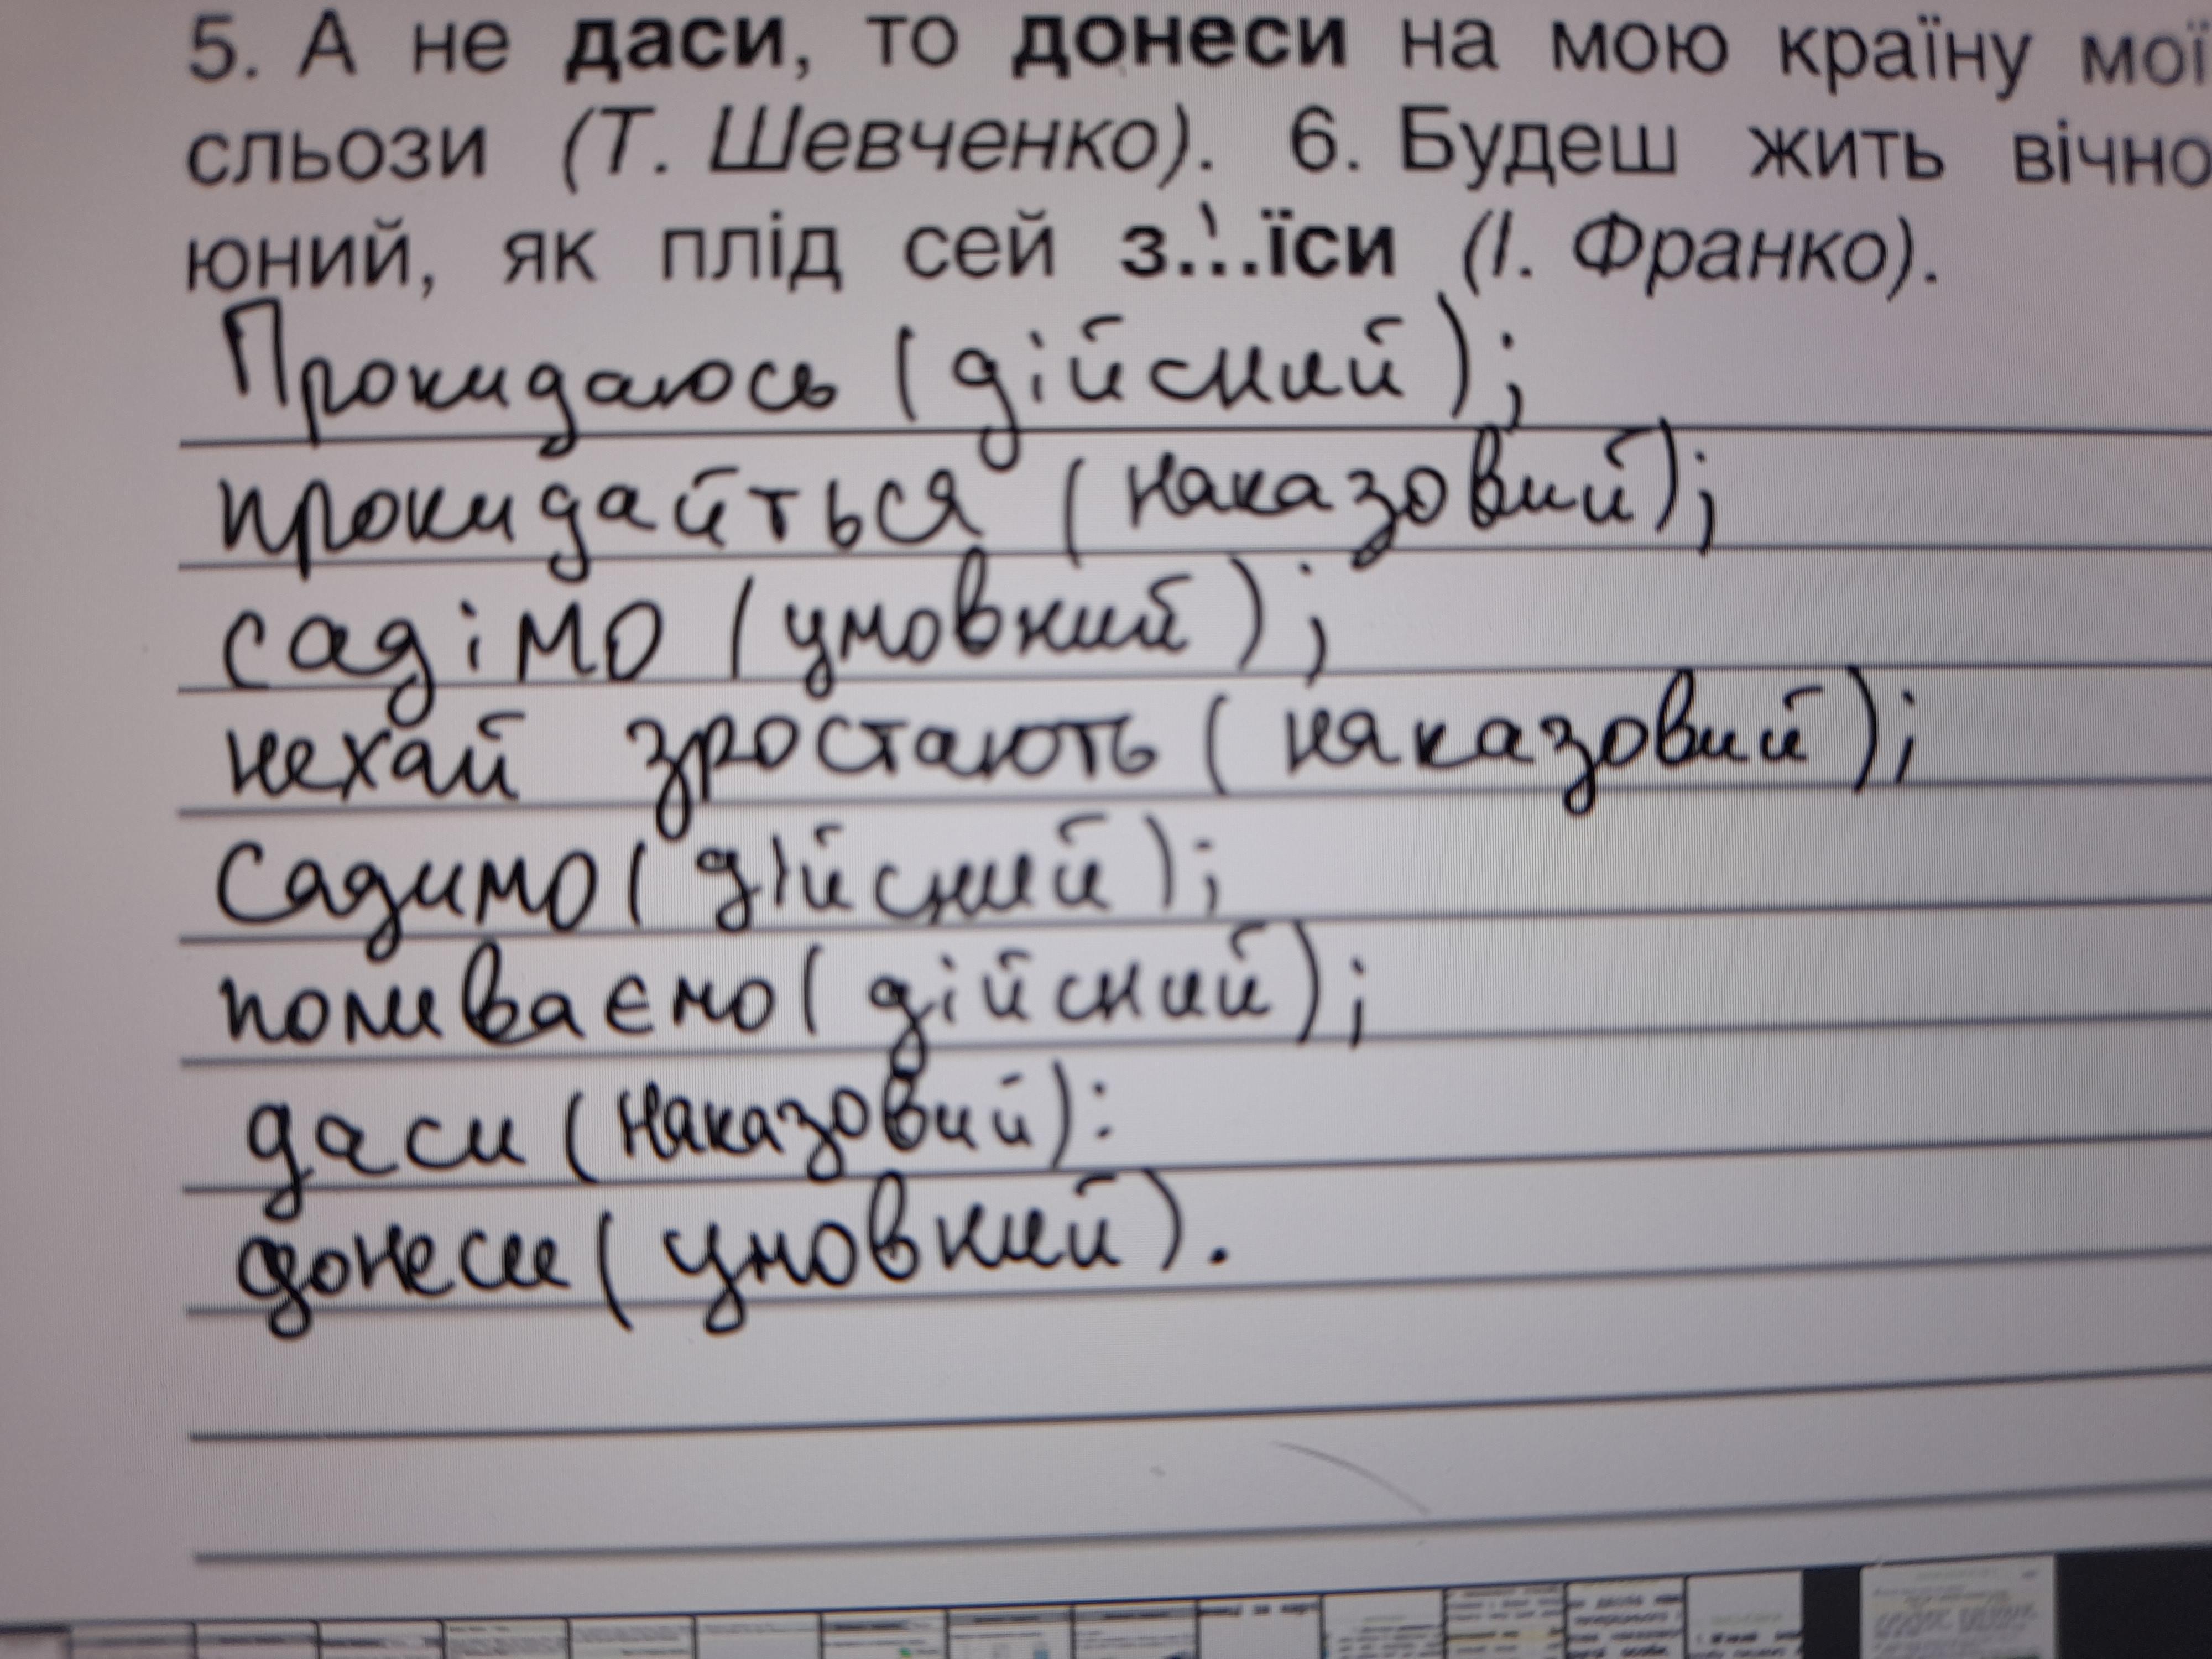 5. А не даси, то донеси на мою країну мої
сльози (Т. Шевченко). 6. Будеш жить вічно
юний, як плід сей з.'..їси (І. Франко).
Прокидаюсь (дійсний);
прокидайться (наказовий);
садімо (умовний);
нехай зростають (наказовий);
Садимо (дійсний);
поливаємо (дійсний);
даси (наказовий):
донеси (умовний).